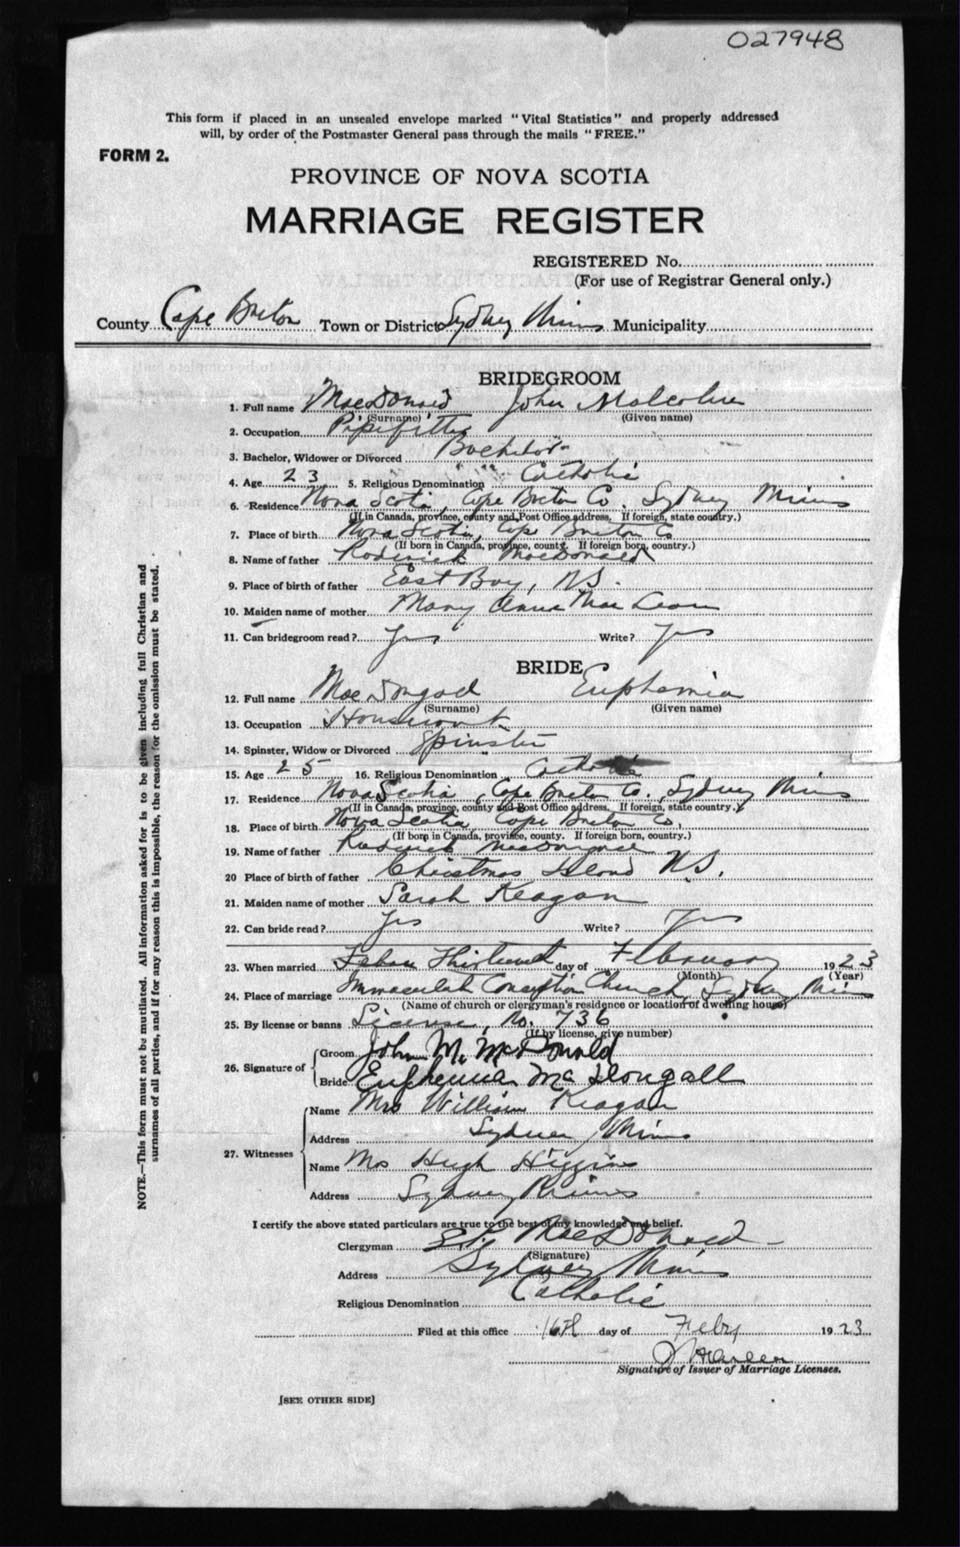 027948
This form if placed in an unsealed envelope marked "Vital Statistics" and properly addressed
will, by order of the Postmaster General pass through the mails "FREE."
FORM 2.
PROVINCE OF NOVA SCOTIA
MARRIAGE REGISTER
REGISTERED No.
(For use of Registrar General only.)
County Cape Breton Town or District Sydney Mines Municipality
BRIDEGROOM
1. Full name MacDonald John Malcolm
(Surname) (Given name)
2. Occupation Pipefitter
3. Bachelor, Widower or Divorced Bachelor
4. Age 23 5. Religious Denomination Catholic
6. Residence Nova Scotia, Cape Breton Co. Sydney Mines
(If in Canada, province, county and Post Office address. If foreign, state country.)
7. Place of birth Nova Scotia, Cape Breton Co
(If born in Canada, province, county. If foreign born, country.)
8. Name of father Roderick MacDonald
9. Place of birth of father East Bay, N.S.
10. Maiden name of mother Mary Anne Mac Lean
11. Can bridegroom read? Yes Write? Yes
BRIDE
12. Full name Euphemia
(Surname) (Given name)
13. Occupation Housework
14. Spinster, Widow or Divorced Spinster
15. Age 25 16. Religious Denomination Catholic
17. Residence Nova Scotia, Cape Breton Co., Sydney Mines
(If in Canada, province, county and Post Office address. If foreign, state country.)
18. Place of birth Nova Scotia Cape Breton Co.
(If born in Canada, province, county. If foreign born, country.)
19. Name of father Roderick
20 Place of birth of father Christmas Island N.S.
21. Maiden name of mother Sarah Keagan
22. Can bride read? Yes Write? Yes
23. When married day of February 1923
(Month) (Year)
24. Place of marriage Immaculate Conception Church, Sydney Mines
(Name of church or clergyman's residence or location of dwelling house)
25. By license or banns License, No. 736
(If by license, give number)
26. Signature of
Groom John M. McDonald
Bride Euphemia McDougall
27. Witnesses
Name Mrs William Keagan
Address Sydney Mines
Name Mrs Hugh Higgins
Address Sydney Mines
I certify the above stated particulars are true to the best of my knowledge and belief.
Clergyman MacDonald
(Signature)
Address Sydney Mines
Religious Denomination Catholic
Filed at this office 16th day of Feby 1923
Signature of Issuer of Marriage Licenses.
[SEE OTHER SIDE]
NOTE.—This form must not be mutilated. All information asked for is to be given including full Christian and
surnames of all parties, and if for any reason this is impossible, the reason for the omission must be stated.